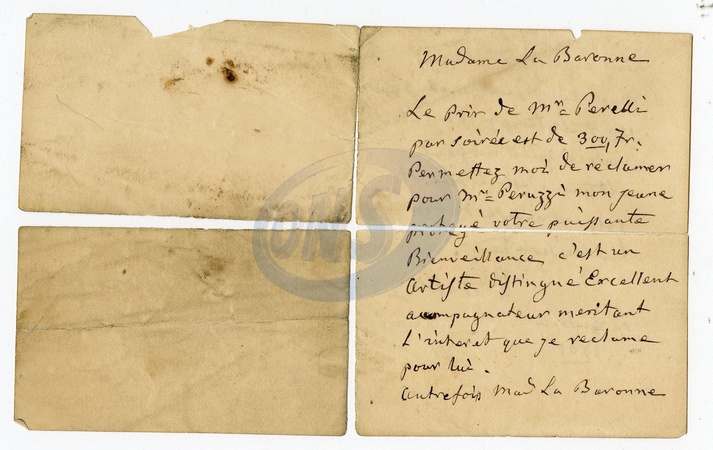 Madame La Baronne
Le Prix de Mr Perelli
par soirée est de 300, fr.
Permettez moi de réclamer
pour Mr Peruzzi mon jeune
protégé votre puissante
Bienveillance c'est un
Artiste distingué Excellent
acompagnateur meritant
L'interet que je reclame
pour lui.
autrefois Made La Baronne
ONS